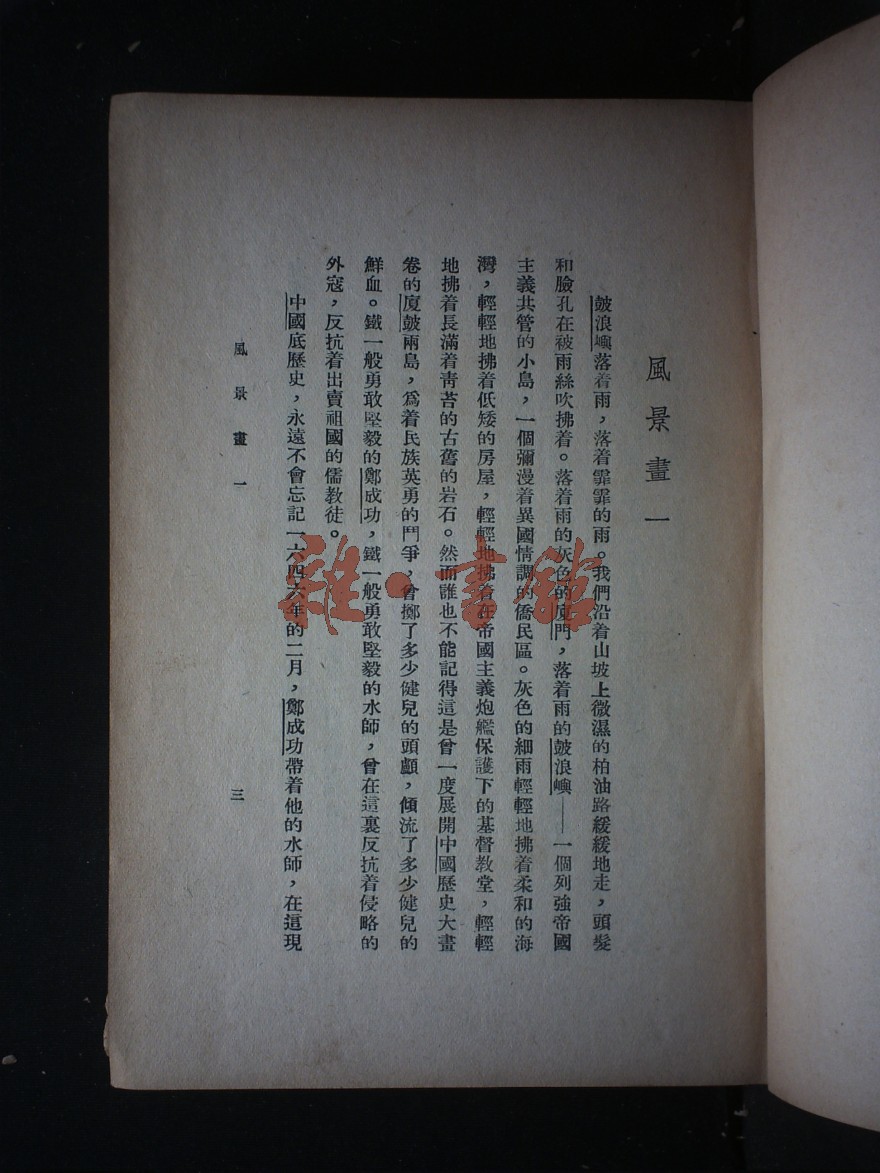 風景畫一
鼓浪嶼落着雨，落着霏霏的雨。我們沿着山坡上微濕的柏油路緩緩地走，頭髮
和臉孔在被雨絲吹拂着。落着雨的灰色的廈門，落着雨的鼓浪嶼——一個列強帝國
主義共管的小島，一個彌漫着異國情調的僑民區。灰色的細雨輕輕地拂着柔和的海
灣，輕輕地拂着低矮的房屋，輕輕地拂着在帝國主義炮艦保護下的基督教堂，輕輕
地拂着長滿着靑苔的古舊的岩石。然而誰也不能記得這是曾一度展開中國歷史大畫
卷的廈鼓兩島，爲着民族英勇的鬥爭，曾擲了多少健兒的頭顱，傾流了多少健兒的
鮮血。鐵一般勇敢堅毅的鄭成功，鐵一般勇敢堅毅的水師，曾在這裏反抗着侵略的
外寇，反抗着出賣祖國的儒教徒。
中國底歷史，永遠不會忘記一六四六年的二月，鄭成功帶着他的水師，在這現
風景畫一
三
雜·書館